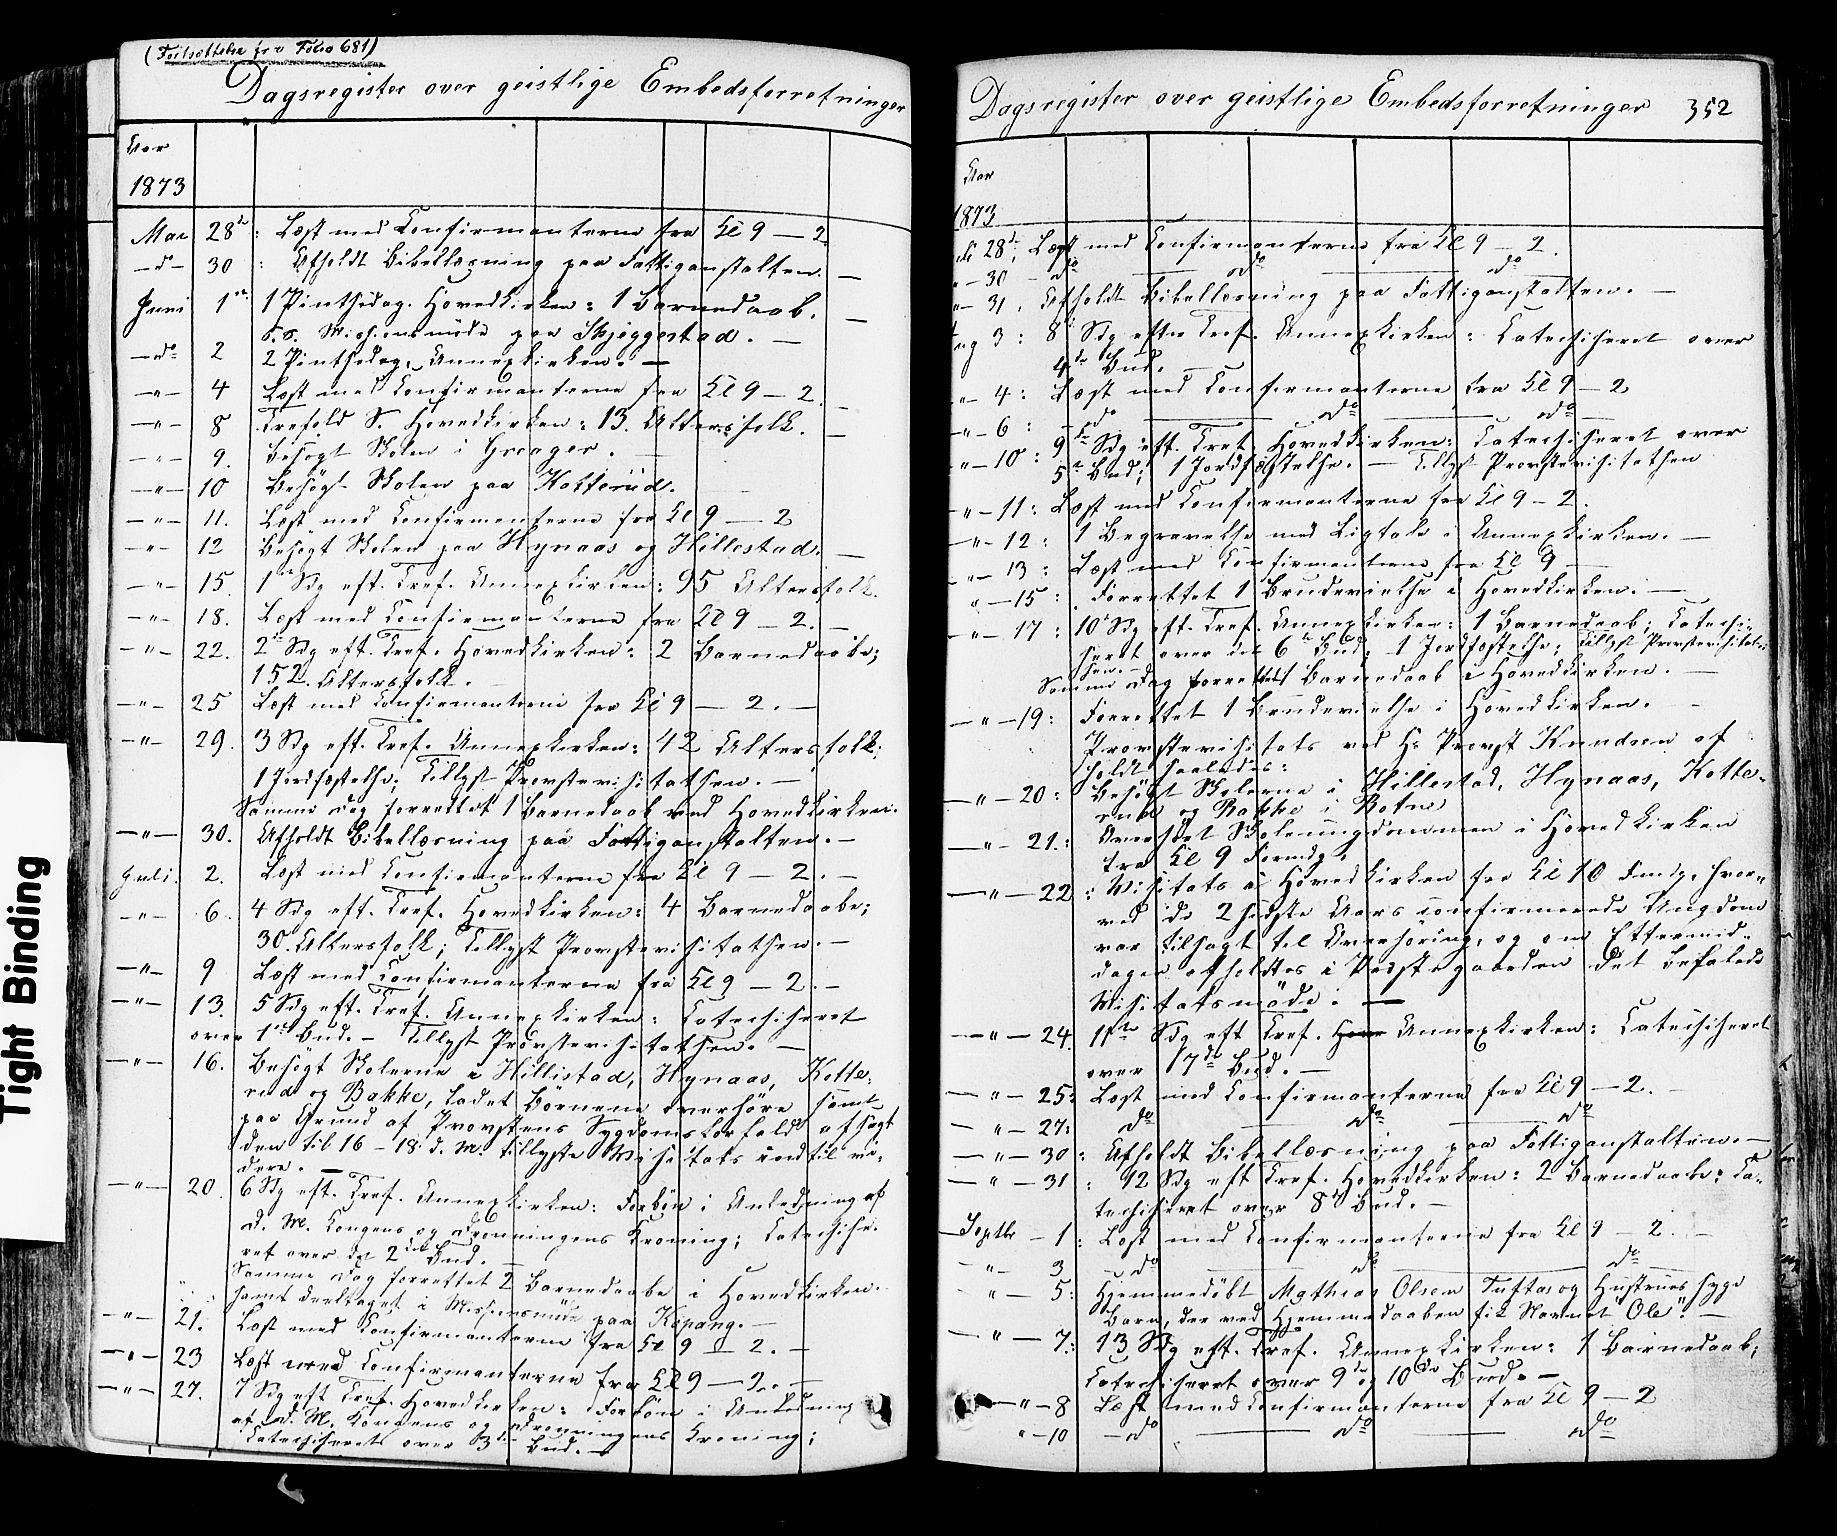 (Fortsættelse fra Folio 681)
Dagsregister over geistlige Embedsforretninger
Aar
1873
Mai 28de: Læst med Confirmanterne fra Kl 9 — 2.
—d°— 30 : Afholdt Bibellæsning paa Fattiganstalten. —
Juni 1ste 1 Pintsedag. Hovedkirken: 1 Barnedaab. —
S. D. Missionsmöde paa Skjeggestad. —
—d°— 2 2 Pintsedag. Annexkirken. —
—"— 4 Læst med Confirmanterne fra Kl 9 — 2. —
—"— 8 Trefold. S. Hovedkirken: 13 Altersfolk. —
—"— 9. Besøgt Skolen i Grenager. —
—"— 10 Besøgt Skolen paa Kotterud. —
—"— 11. Læst med Confirmanterne fra Kl 9 — 2
—"— 12 Besøgt Skolen paa Hynaas og Hillestad. —
—"— 15. 1ste Sdg eft. Tref. Annexkirken: 95 Altersfolk.
—"— 18. Læst med Confirmanterne fra Kl 9 — 2. —
—"— 22. 2den Sdg eft. Tref. Hovedkirken: 2 Barnedaabe;
152 Altersfolk. —
—"— 25 Læst med Confirmanterne fra Kl 9 — 2. —
—"— 29. 3 Sdg eft. Tref. Annexkirken: 42 Altersfolk;
1 Jordfæstelse; Tillyst Provstevisitatsen. —
Samme Dag forrettet 1 Barnedaab ved Hovedkirken.
—"— 30. Afholdt Bibellæsning paa Fattiganstalten. —
Juli. 2. Læst med Confirmanterne fra Kl 9 — 2. —
—"— 6. 4 Sdg eft. Tref. Hovedkirken: 4 Barnedaabe;
30 Altersfolk; Tillyst Provstevisitatsen. —
—"— 9 Læst med Confirmanterne fra Kl 9 — 2. —
—"— 13. 5 Sdg eft. Tref. Annexkirken: Catechiseret
over 1ste Bud. — Tillyst Provstevisitatsen. —
—"— 16. Besøgt Skolerne i Hillistad, Hynaas, Kotte-
rud og Bakke, ladet Börnene överhöre samt
paa Grund af Provstens Sygdomsforfald afsagt
den til 16 – 18 d. M. tillyste Visitats indtil vi-
dere. —
—"— 20. 6 Sdg eft. Tref. Annexkirken: Forbön i Anledning af
D. M. Kongens og Dronningens Kroning; Catechise-
ret over det 2det Bud. —
Samme Dag forrettet 2 Barnedaabe i Hovedkirken.
samt deeltaget i Missionsmöde paa Kopang. —
—"— 21. Læst med Confirmanterne fra Kl 9 — 2. —
—"— 23 Læst med Confirmanterne fra Kl 9 — 2. —
—"— 27. 7 Sdg eft Tref. Hovedkirken: Forbön i Anledning
af D. M. Kongens og Dronningens Kroning;
Catechiseret over 3die Bud. —
Dagsregister over geistlige Embedsforretninger 352
Aar
1873
28de: Læst med Confirmanterne fra Kl 9 — 2.
"— 30 — d° — d° — d° —
"— 31. Afholdt Bibellæsning paa Fattiganstalten. —
3 : 8 Sdg efter Tref. Annexkirken: Catechiseret over
4de Bud. —
"— 4: Læst med Confirmanterne fra Kl 9 — 2
—"— 6 : — d° — d° — d° —
—"— 10 : 9de Sdg eft. Tref. Hovedkirken: Catechiseret over
5te Bud; 1 Jordfæstelse. — Tillyst Provstevisitatsen
—"— 11: Læst med Confirmanterne fra Kl 9 – 2.
—"— 12 : 1 Begravelse med Ligtale i Annexkirken. —
—"— 13 : Læst med Confirmanterne fra Kl 9 —
"— 15 : Forrettet 1 Brudevielse i Hovedkirken. —
—"— 17 : 10 Sdg eft. Tref. Annexkirken: 1 Barnedaab; Catechi-
seret over det 6te Bud; 1 Jordfæstelse; Tillyst Provstevisitat-
sen. —
Samme Dag forrettet Barnedaab i Hovedkirken. —
—"— 19: Forrettet 1 Brudevielse i Hovedkirken. —
Provstevisitats ved Hr Provst Knudsen af-
holdt saaledes:
—"— 20: Besøgt Skolerne i Hillestad, Hynaas, Kotte-
rud og Bakke i Botne
—"— 21: Overhört Skoleungdommen i Hovedkirken
fra Kl 9 Formdg.
—"— 22 : Visitats i Hovedkirken fra Kl 10 Fmdg. hvor-
ved de 2 sidste Aars confirmerede Ungdom
var tilsagt til Overhöring, og om Eftermid-
dagen afholdtes i Præstegaarden det befalede
Visitatsmöde. —
—"— 24. 11te Sdg eft Tref. Annexkirken: Catechiseret
over 7de Bud. —
—"— 25: Læst med Confirmanterne fra Kl 9 — 2. —
—"— 27: d° — d° — d°
—"— 30 : Afholdt Bibellæsning paa Fattiganstalten. —
—"— 31 : 12 Sdg eft Tref. Hovedkirken: 2 Barnedaabe; Ca-
techiseret over 8de Bud. —
Septbr — 1 : Læst med Confirmanterne fra Kl 9 — 2. —
—"— 3 — d° — d° — d°
—"— 5: Hjemmedöbt Mathias Olsen Tuftas og Hustrues syge
Barn, der ved Hjemmedaaben fik Navnet "Ole". —
—"— 7: 13 Sdg eft. Tref. Annexkirken: 1 Barnedaab;
Catechiseret over 9de og 10de Bud. —
—"— 8 Læst med Confirmanterne fra Kl 9 — 2
"— 10 — d° — d° — d°
Tight Binding